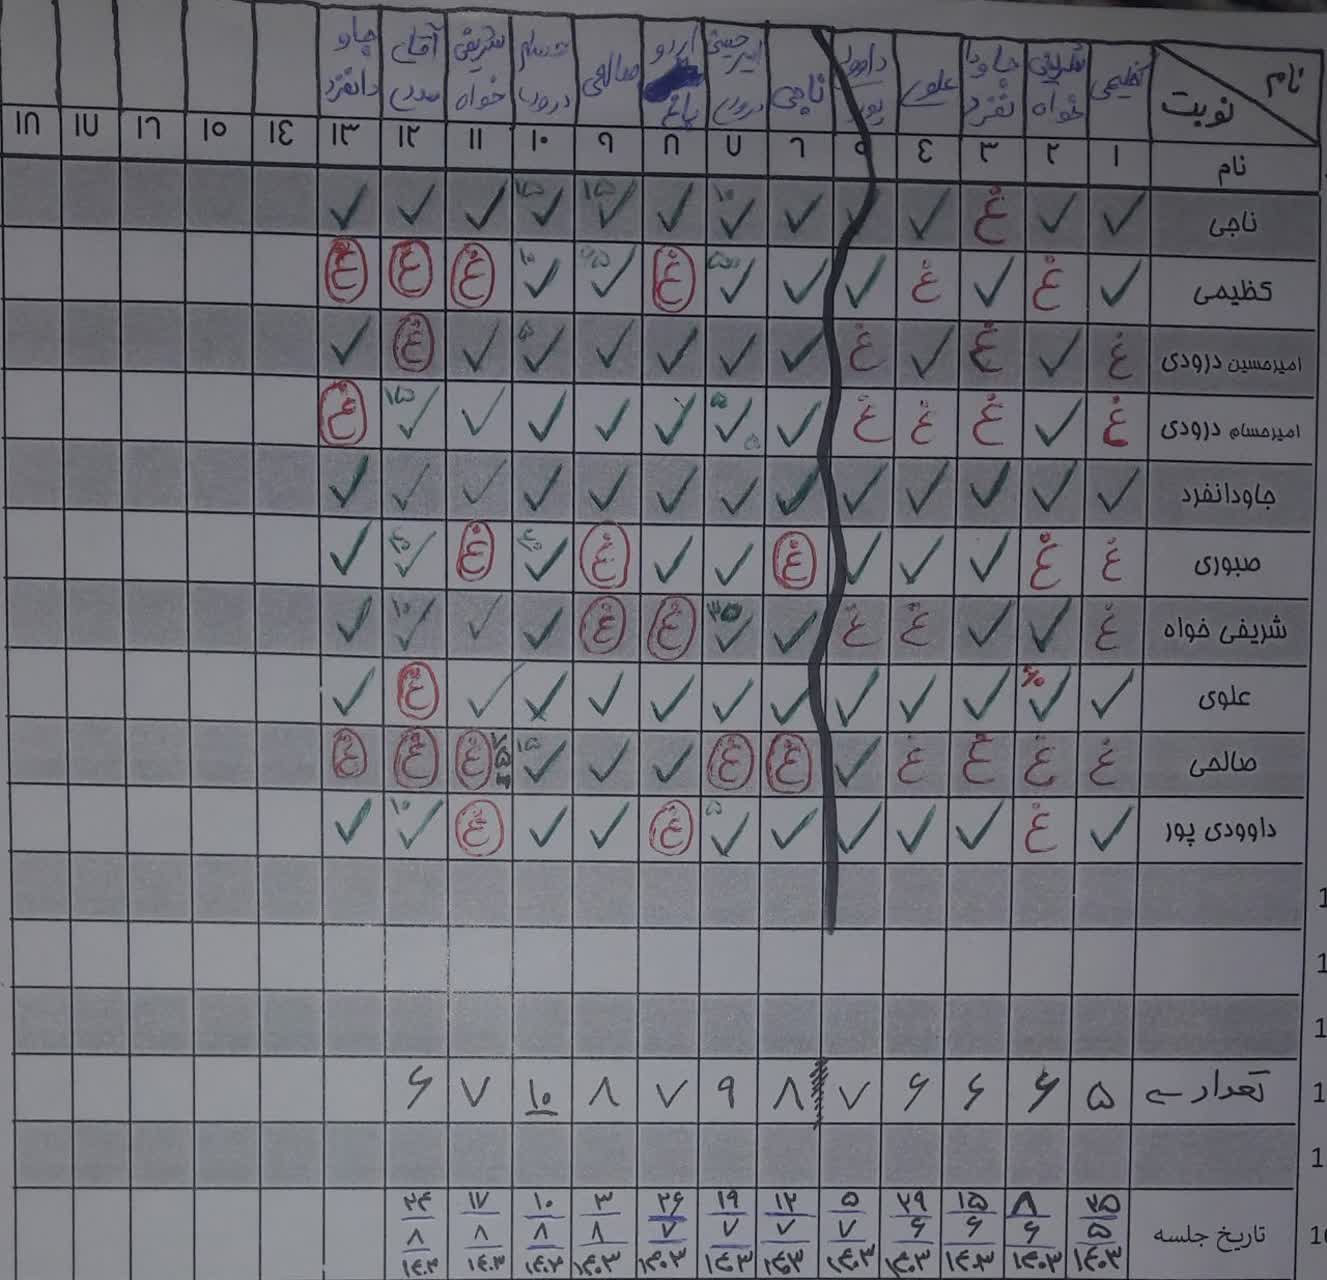 نام نوبت کظیمی شریفی خواه جاودانفرد علوی داوودی پور ناجی امیرحسین درودی اردو باغ صالحی حسام درودی شریفی خواه آقای صدری جاودانفرد
نام ۱ ۲ ۳ ٤ ۵ ٦ ۷ ۸ ۹ ۱۰ ۱۱ ۱۲ ۱۳ ۱٤ ۱۵ ۱٦ ۱۷ ۱۸
ناجی ✓ ✓ غ ✓ ✓ ✓ ✓ ۱۰ ✓ ✓ ۱۵ ✓ ۱۵ ✓ ✓ ✓
کظیمی ✓ غ ✓ غ ✓ ✓ ✓ غ ✓ ✓ ۱۰ غ غ غ
امیرحسین درودی غ ✓ غ ✓ غ ✓ ✓ ✓ ✓ ✓ ۵ ✓ غ ✓
امیرحسام درودی غ ✓ غ غ غ ✓ ✓ ۵ ۵ ✓ ✓ ✓ ✓ ✓ ۱۵ غ
جاودانفرد ✓ ✓ ✓ ✓ ✓ ✓ ✓ ✓ ✓ ✓ ✓ ✓ ✓
صبوری غ غ ✓ ✓ ✓ غ ✓ ✓ غ ✓ غ ✓ ✓
شریفی خواه غ ✓ ✓ غ غ ✓ ✓ غ غ ✓ ✓ ✓ ۱۰ ✓
علوی ✓ ✓ ✓ ✓ ✓ ✓ ✓ ✓ ✓ ✓ ✓ غ ✓
صالحی غ غ غ غ ✓ غ غ ✓ ✓ ✓ ۱۵ غ غ غ
داوودی پور ✓ غ ✓ ✓ ✓ ✓ ✓ ۵ غ ✓ ✓ غ ✓ ۱۰ ✓
تعداد ۵ ۶ ۶ ۶ ۷ ۸ ۹ ۷ ۸ ۱۰ ۷ ۶
تاریخ جلسه ۲۵ ۸ ۱۵ ۲۹ ۵ ۱۲ ۱۹ ۲۶ ۳ ۱۰ ۱۷ ۲۴
۵ ۶ ۶ ۶ ۷ ۷ ۷ ۷ ۸ ۸ ۸ ۸
۱۴۰۳ ۱۴۰۳ ۱۴۰۳ ۱۴۰۳ ۱۴۰۳ ۱۴۰۳ ۱۴۰۳ ۱۴۰۳ ۱۴۰۳ ۱۴۰۳ ۱۴۰۳ ۱۴۰۳